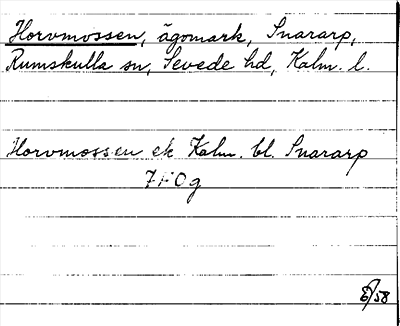 Horvmossen, ägomark, Snararp,
Rumskulla sn, Sevede hd, Kalm. l.
Horvmossen ek Kalm. bl. Snararp
7F0g
58